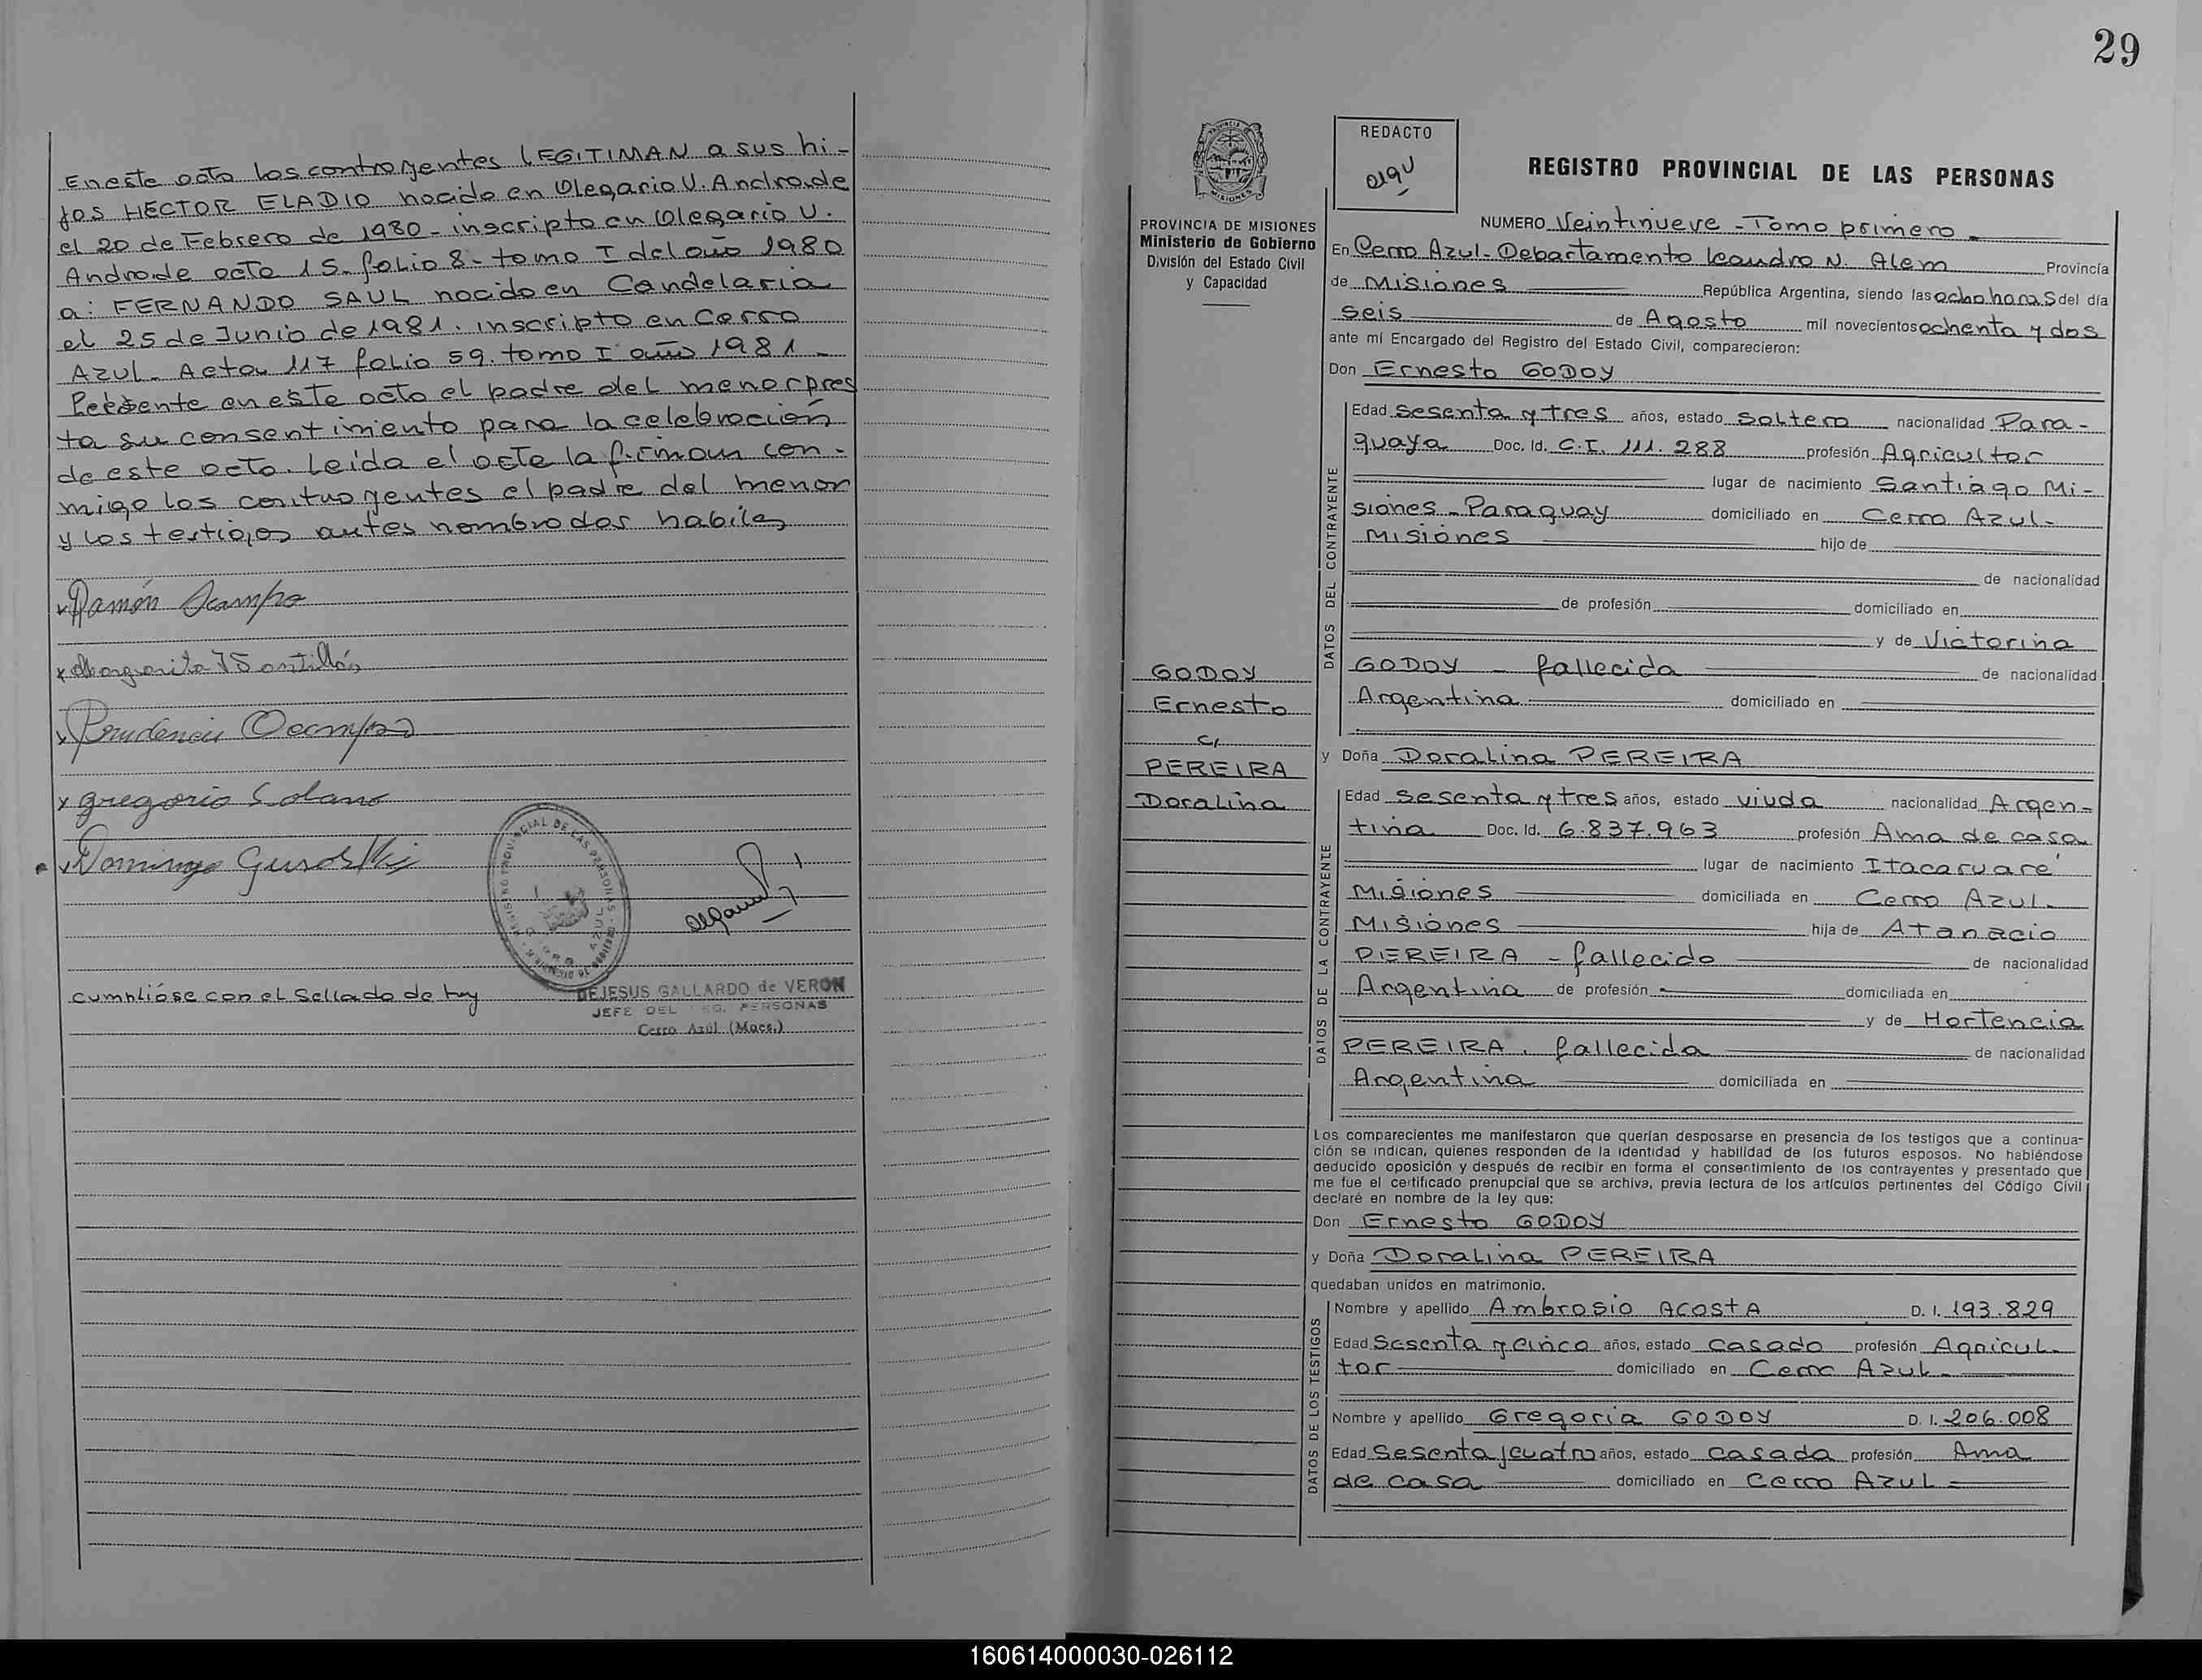 En este acto los contrayentes LEGITIMAN a sus hi-
jos HECTOR ELADIO nacido en Olegario V. Andrade
el 20 de Febrero de 1980 - inscripto en Olegario V.
Andrade acta 15. folio 8 - tomo I del año 1980
a: FERNANDO SAUL nacido en Candelaria
el 25 de Junio de 1981. inscripto en Cerro
Azul - Acta 117 folio 59. tomo I año 1981 -
Presente en este acto el padre del menor pres
ta su consentimiento para la celebración
de este acto. Leida el acta la firman con-
migo los contrayentes el padre del menor
y los testigos antes nombrados habiles
x Ramón Ocampo
x Margarita Santillán
x Prudencio Ocampo
x gregorio Solano
x Domingo
cumplióse con el Sellado de ley
DEJESUS GALLARDO de VERON
JEFE DEL REG. PERSONAS
Cerro Azul (Mnes.)
29
REDACTO
PROVINCIA DE MISIONES
Ministerio de Gobierno
División del Estado Civil
y Capacidad
GODOY
Ernesto
c/
PEREIRA
Doralina
REGISTRO PROVINCIAL DE LAS PERSONAS
NUMERO Veintinueve - Tomo primero -
En Cerro Azul - Departamento Leandro N. Alem Provincia
de Misiones República Argentina, siendo las ocho horas del día
seis de Agosto mil novecientos ochenta y dos
ante mí Encargado del Registro del Estado Civil, comparecieron:
Don Ernesto GODOY
DATOS DEL CONTRAYENTE
Edad sesenta y tres años, estado soltero nacionalidad Para-
guaya Doc. Id. C.I. 111.288 profesión Agricultor
lugar de nacimiento Santiago Mi-
siones - Paraguay domiciliado en Cerro Azul -
Misiones hijo de
de nacionalidad
de profesión domiciliado en
y de Victorina
GODOY - fallecida de nacionalidad
Argentina domiciliado en
y Doña Doralina PEREIRA
DATOS DE LA CONTRAYENTE
Edad sesenta y tres años, estado viuda nacionalidad Argen-
tina Doc. Id. 6.837.963 profesión Ama de casa
lugar de nacimiento Itacaruaré
Misiones domiciliada en Cerro Azul -
Misiones hija de Atanacio
PEREIRA - fallecido de nacionalidad
Argentina de profesión domiciliada en
y de Hortencia
PEREIRA . fallecida de nacionalidad
Argentina domiciliada en
Los comparecientes me manifestaron que querían desposarse en presencia de los testigos que a continua-
ción se indican, quienes responden de la identidad y habilidad de los futuros esposos. No habiéndose
deducido oposición y después de recibir en forma el consentimiento de los contrayentes y presentado que
me fue el certificado prenupcial que se archiva, previa lectura de los artículos pertinentes del Código Civil
declaré en nombre de la ley que:
Don Ernesto GODOY
y Doña Doralina PEREIRA
quedaban unidos en matrimonio.
DATOS DE LOS TESTIGOS
Nombre y apellido Ambrosio ACOSTA D. I. 193.829
Edad Sesenta y cinco años, estado casado profesión Agricul-
tor domiciliado en Cerro Azul -
Nombre y apellido Gregoria GODOY D. I. 206.008
Edad Sesenta y cuatro años, estado casada profesión Ama
de casa domiciliado en Cerro AZUL
160614000030-026112